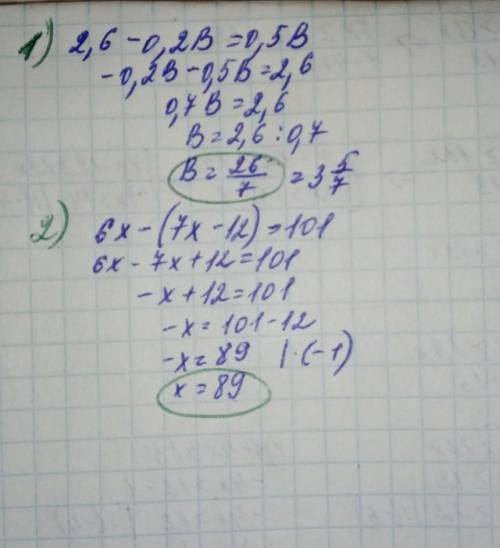 1) 2,6 - 0,2B = 0,5B
-0,2B - 0,5B = 2,6
0,7B = 2,6
B = 2,6 : 0,7
B = 26/7 = 3 5/7
2) 6x - (7x - 12) = 101
6x - 7x + 12 = 101
-x + 12 = 101
-x = 101 - 12
-x = 89 | · (-1)
x = 89